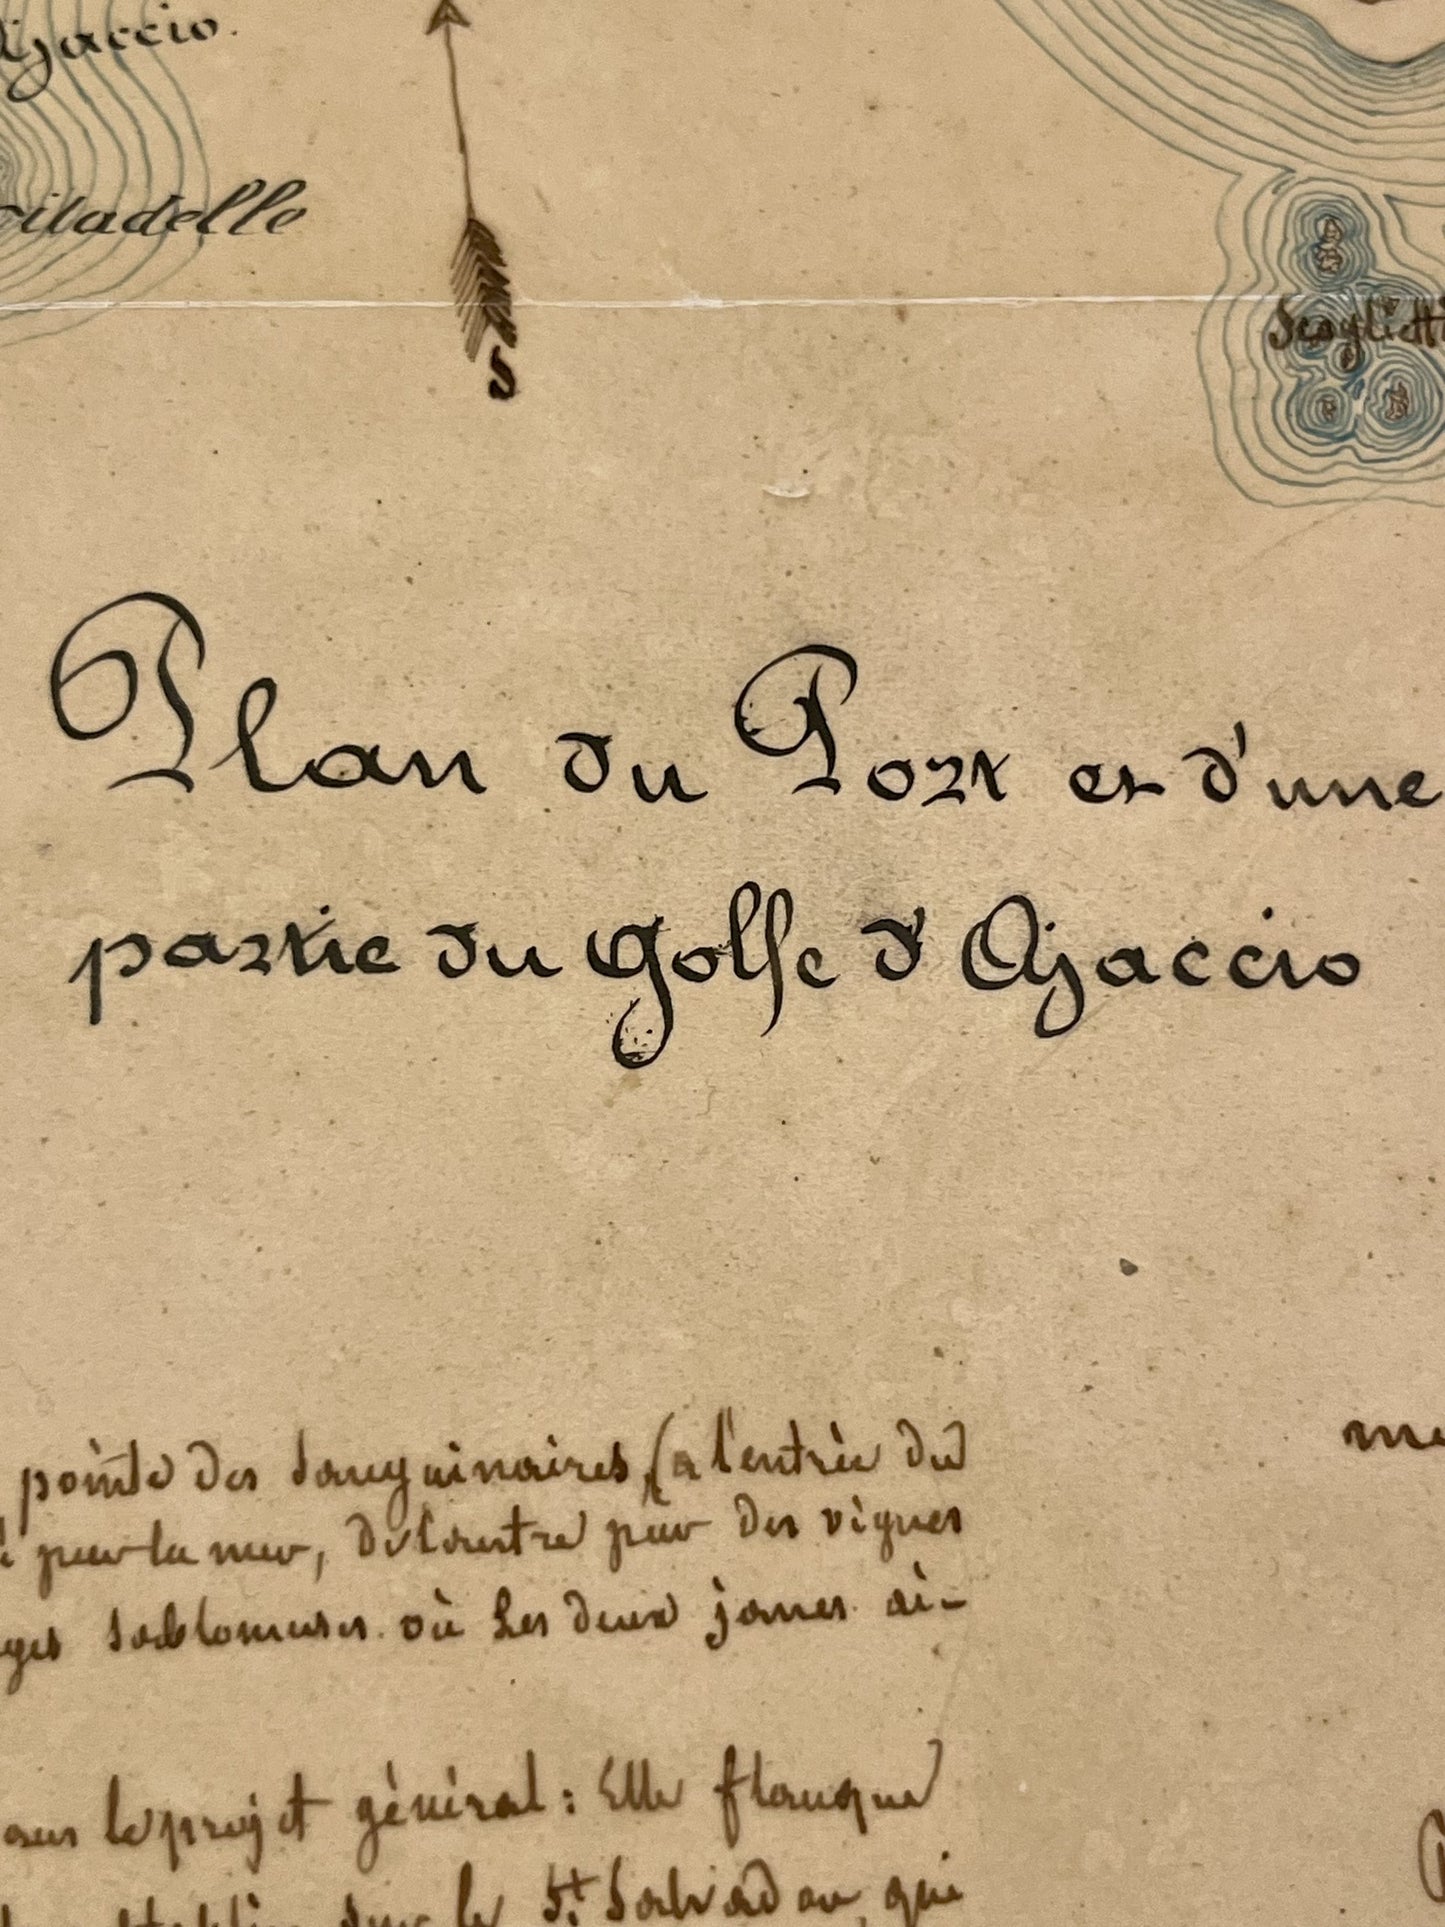 Ajaccio.
citadelle
S
Scoglietti
Plan du Port et d'une
partie du golfe d'Ajaccio
pointe des Sanguinaires, (a l'entrée du
par la mer, de l'autre par des vignes
sablonneuses où les deux
me
le projet général : Elle flanque
sur le St. Salvador, qui